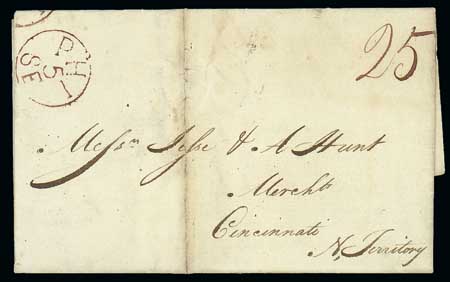 PHI
5
SE
25
Messrs Jesse & A Hunt
Merchts
Cincinnati
N, Territory